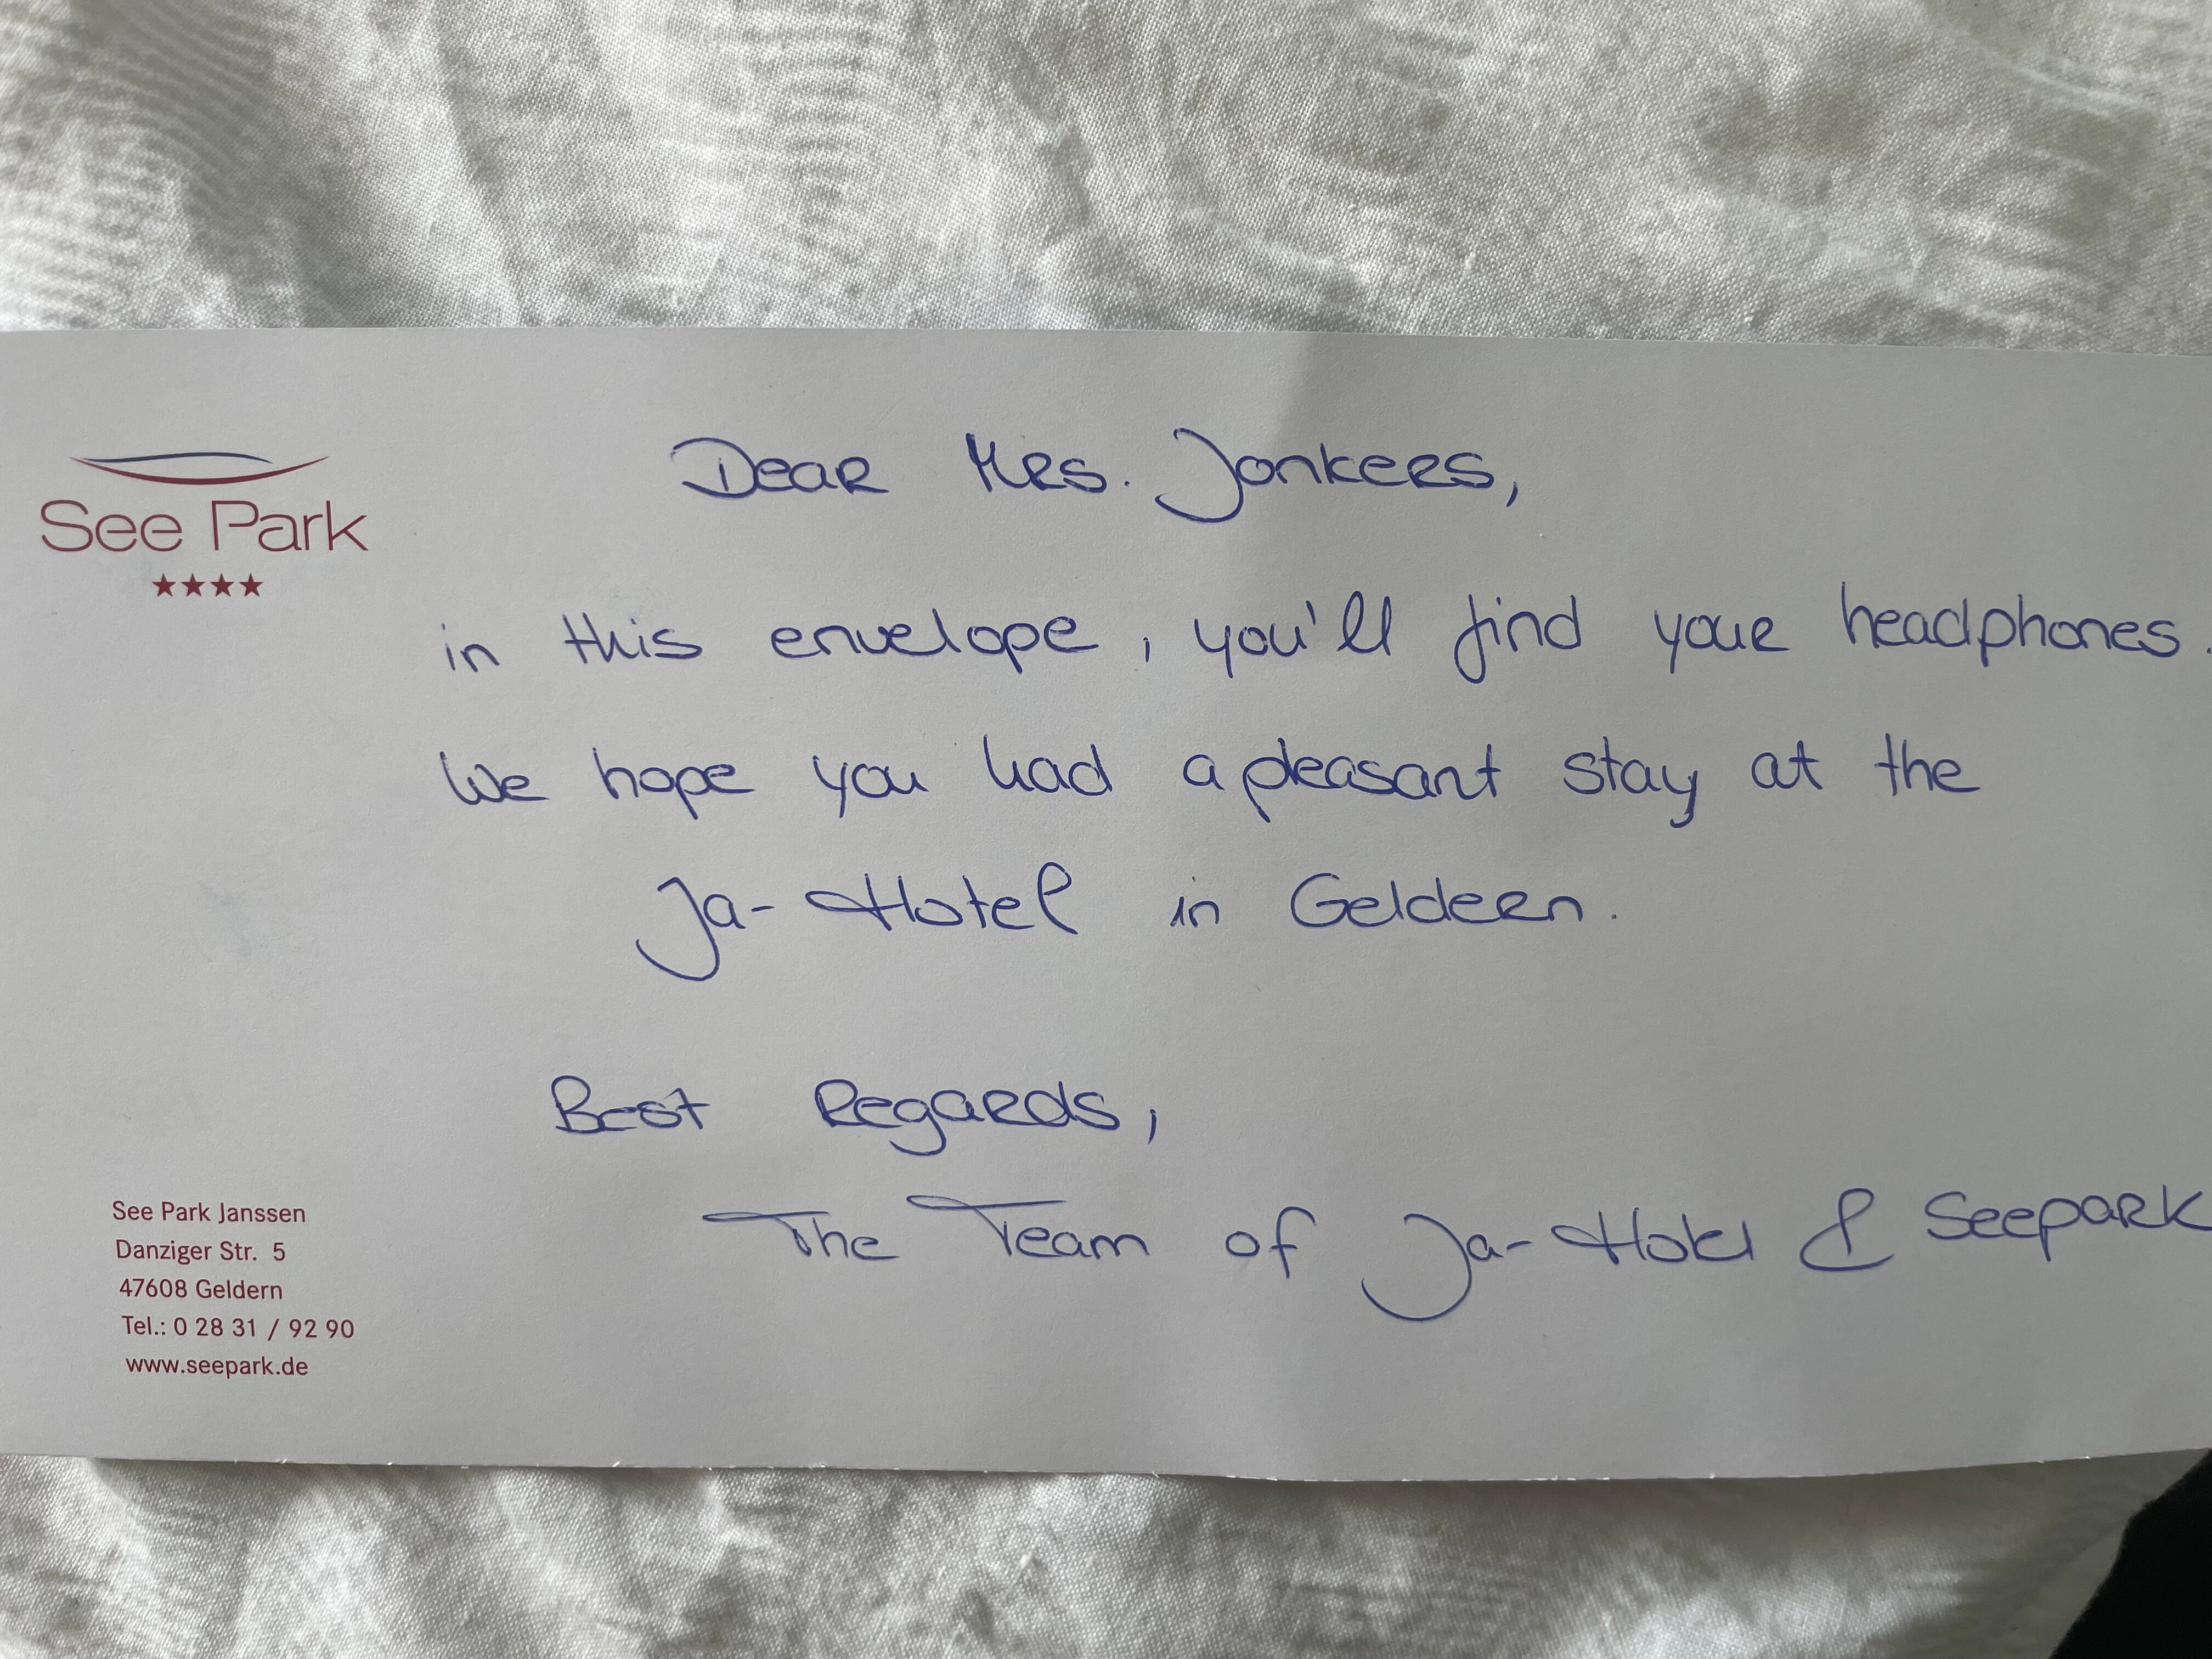 See Park
★★★★
Dear Mrs. Jonkers,
in this envelope, you'll find your headphones.
We hope you had a pleasant stay at the
Ja-Hotel in Geldern.
Best Regards,
The Team of Ja-Hotel & Seepark
See Park Janssen
Danziger Str. 5
47608 Geldern
Tel.: 0 28 31 / 92 90
www.seepark.de